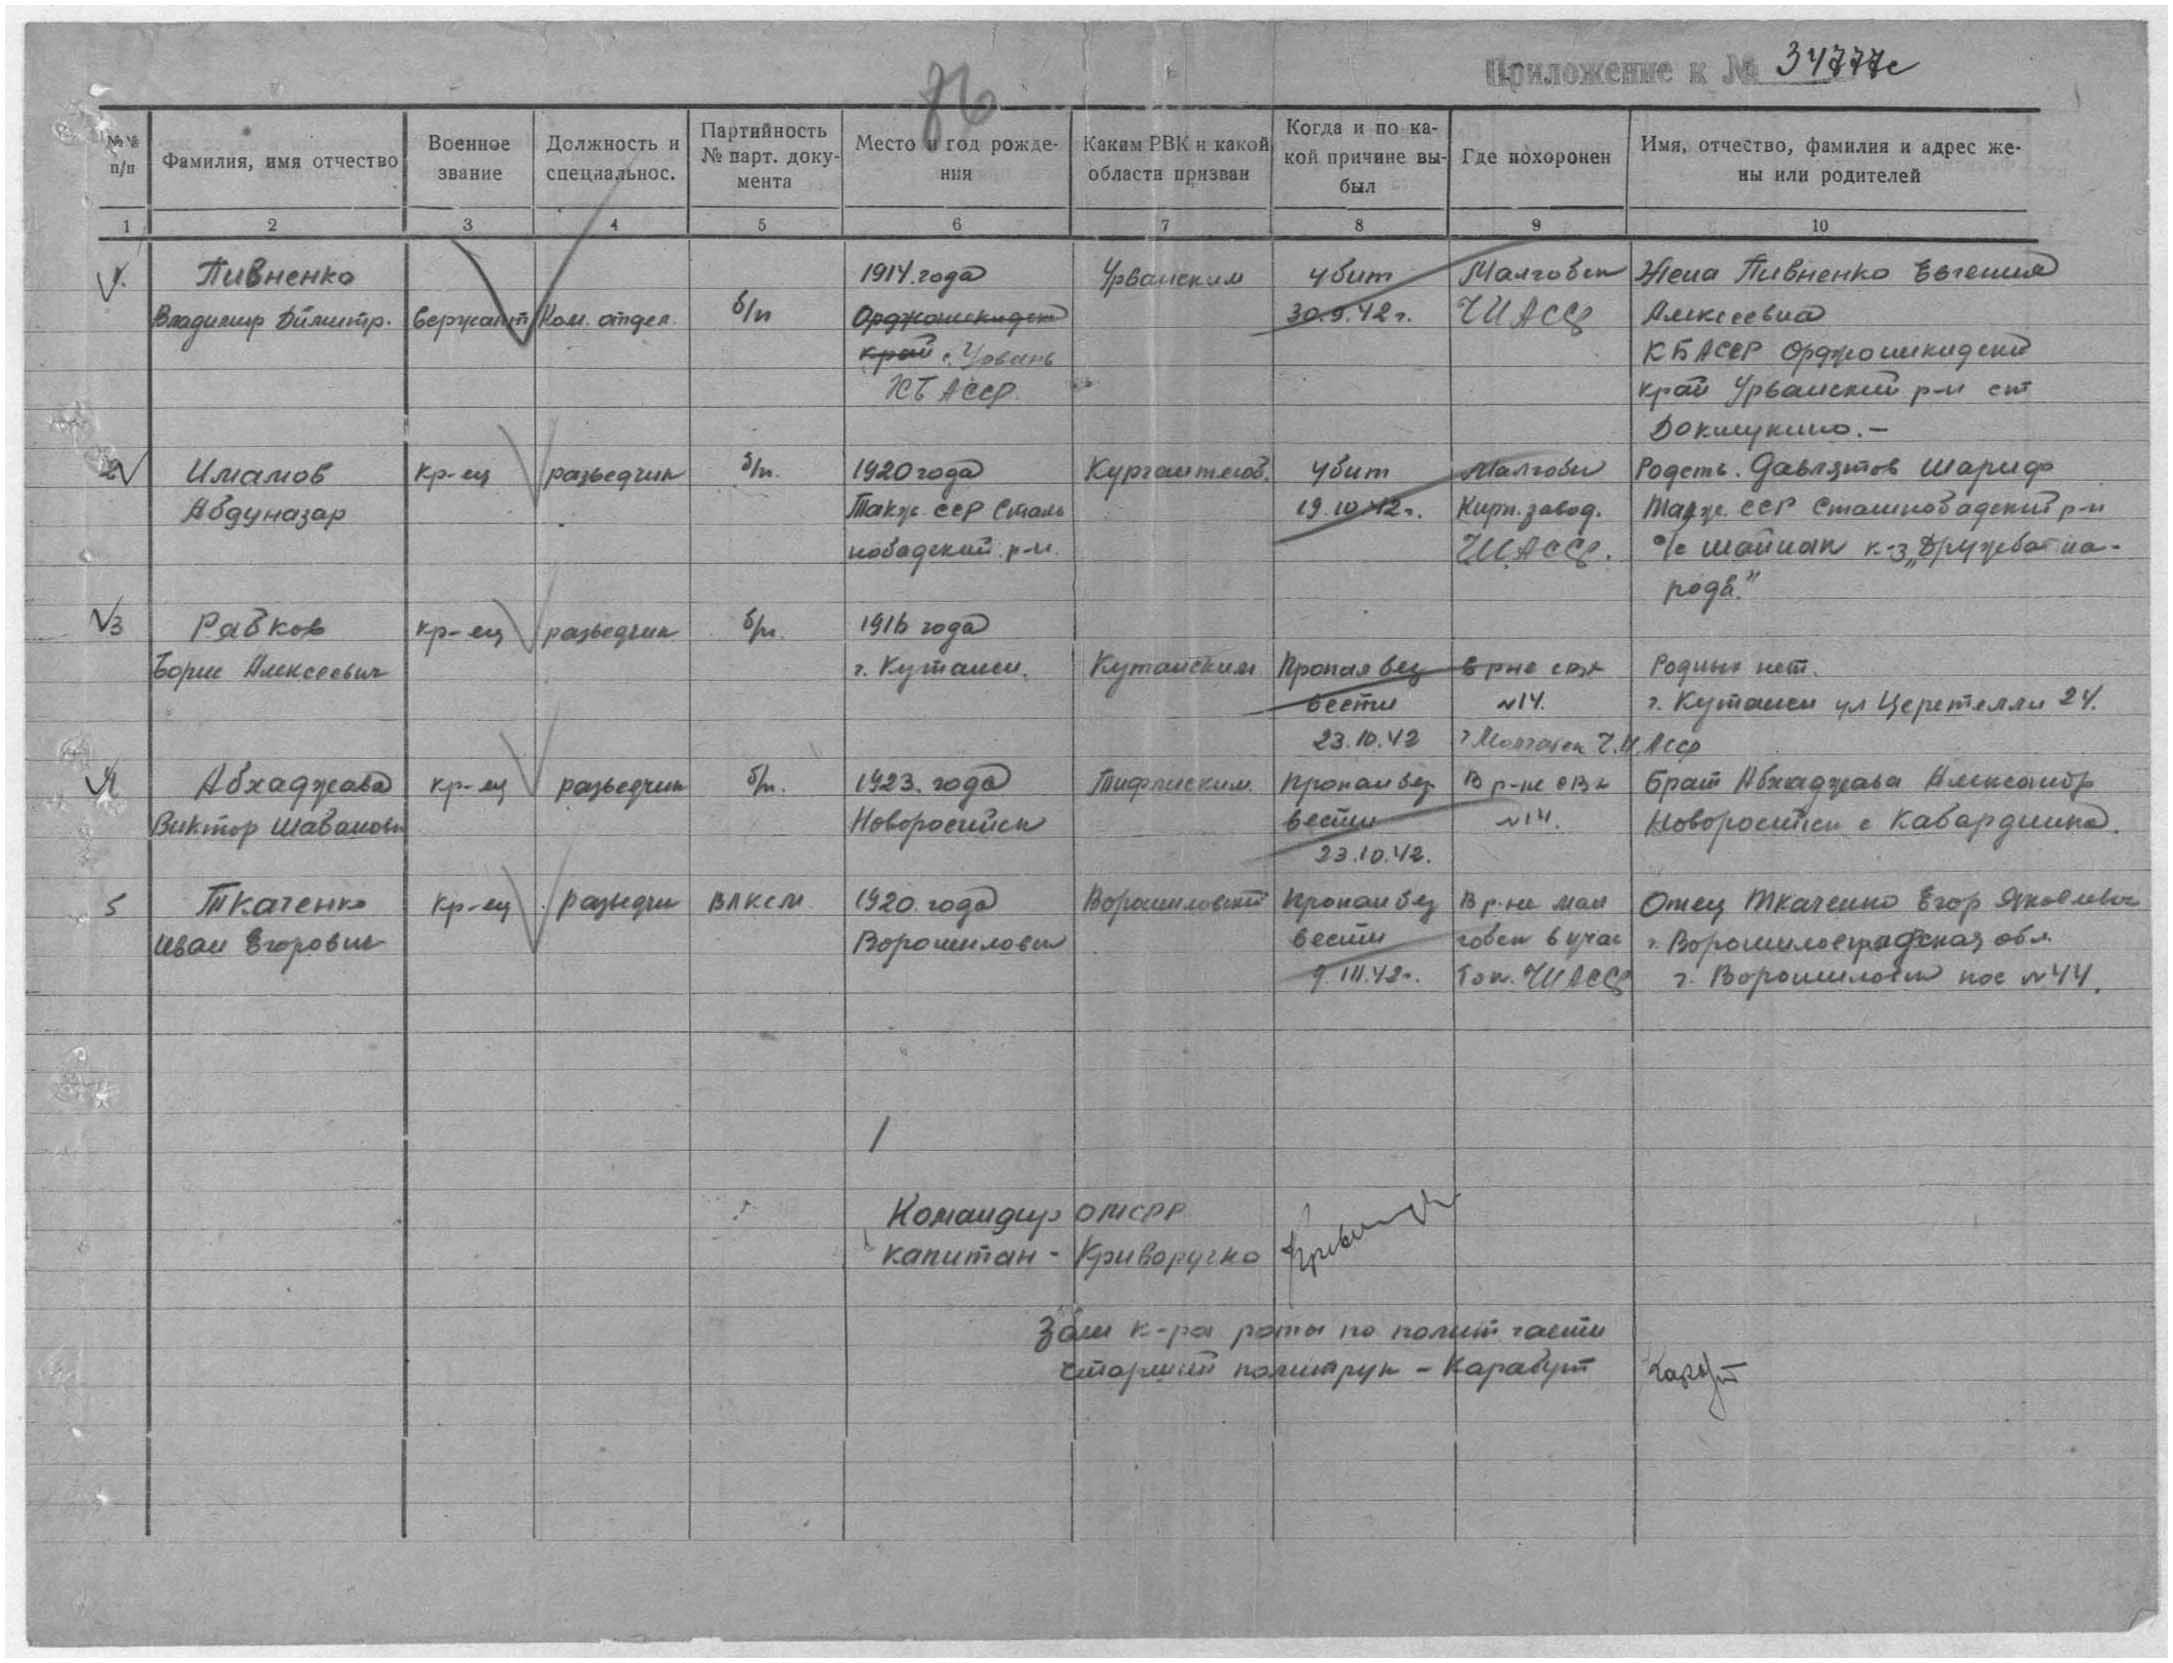 Приложение к № 34777с
86
№№ п/п
Фамилия, имя отчество
Военное звание
Должность и специальнос.
Партийность № парт. документа
Место и год рождения
Каким РВК и какой области призван
Когда и по какой причине выбыл
Где похоронен
Имя, отчество, фамилия и адрес жены или родителей
1 2 3 4 5 6 7 8 9 10
1. Пивненко 1914 года Урванским убит Малгобек Жена Пивненко Евгения
Владимир Димитр. Сержант Ком. отдел. б/п Орджоникидзе 30.9.42 г. ЧИАССР Алексеевна
край с. Урвань КБАССР Орджоникидзе
КБ АССР край Урванский р-н ст
Докшукино. –
2 Имамов кр-ец разведчик б/п. 1920 года убит Малгобек Родств. Давлятов Шариф
Абдуназар Тадж. ССР Стали 19.10.42 г. Кирп. завод. Тадж. ССР Сталинобадский р-н
нобадский р-н. ЧИАССР. с/с к-з „Дружба на-
рода"
3 Равков кр-ец разведчик б/п. 1916 года
Борис Алексеевич г. Кутаиси. Кутаиским Пропал без в р-не свх Родных нет.
вести №14. г. Кутаиси ул Церетелли 24.
23.10.42 г Малгобек Ч.И.АССР
4 Абхаджава кр-ец разведчик б/п. 1923. года Тифлиским Пропал без В р-не свх Брат Абхаджава Александр
Виктор Новоросийск вести №14. Новоросийск с Кабардинка.
23.10.42.
5 Ткаченко кр-ец разведчи ВЛКСМ 1920. года Ворошиловский Пропал без В р-не Мал Отец Ткаченко Егор Яковлевич
Иван Егорович Ворошиловск вести гобек г. Ворошиловградская обл.
9.III.42 г. ЧИАССР г. Ворошиловск пос №44.
Командир ОМСРР
капитан - Криворучко
Зам к-ра роты по полит части
Старший политрук – Карабут